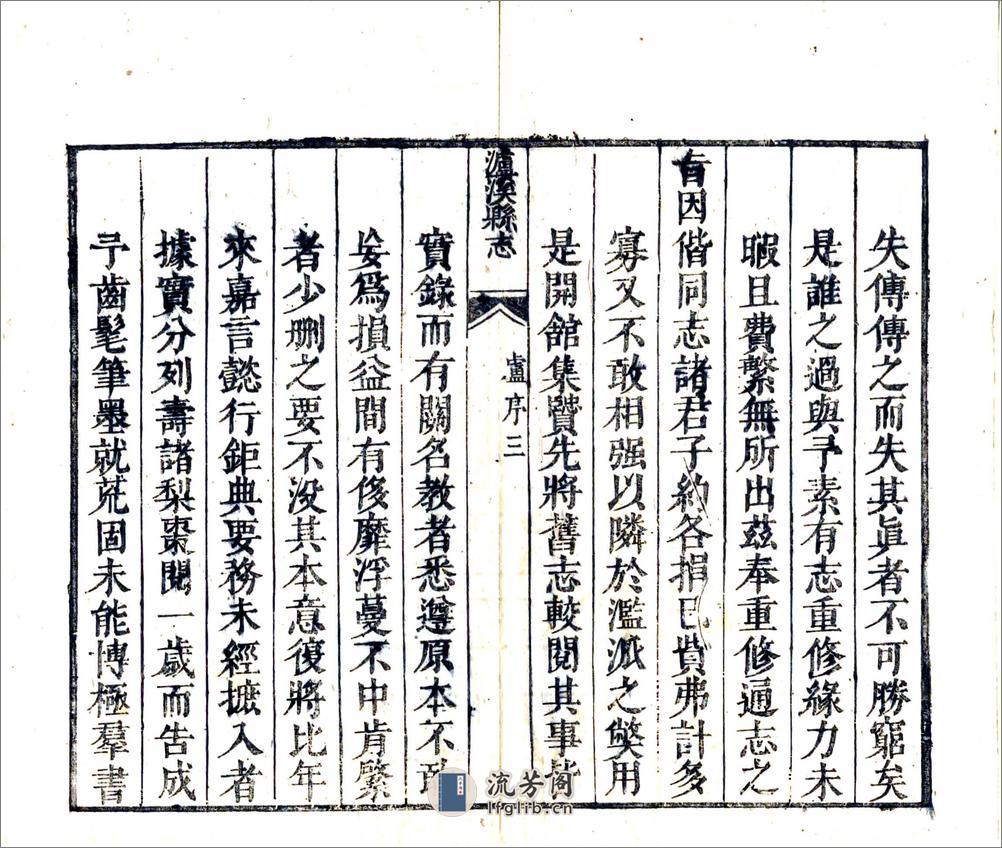 失傳傳之而失其眞者不可勝窮矣
是誰之過與予素有志重修緣力未
暇且費繫無所出茲奉重修通志之
旨因偕同志諸君子約各捐已貲弗計多
寡又不敢相强以隣於濫派之獘用
是開館集贒先將舊志較閱其事皆
瀘溪縣志
盧序三
實錄而有關名教者悉遵原本不敢
妄爲損益間有侈靡浮蔓不中肯綮
者少刪之要不没其本意復將比年
來嘉言懿行鉅典要務未經摭入者
據實分列壽諸梨棗閱一歲而告成
予齒髦筆墨就荒固未能博極羣書
流芳阁
lfglib.cn